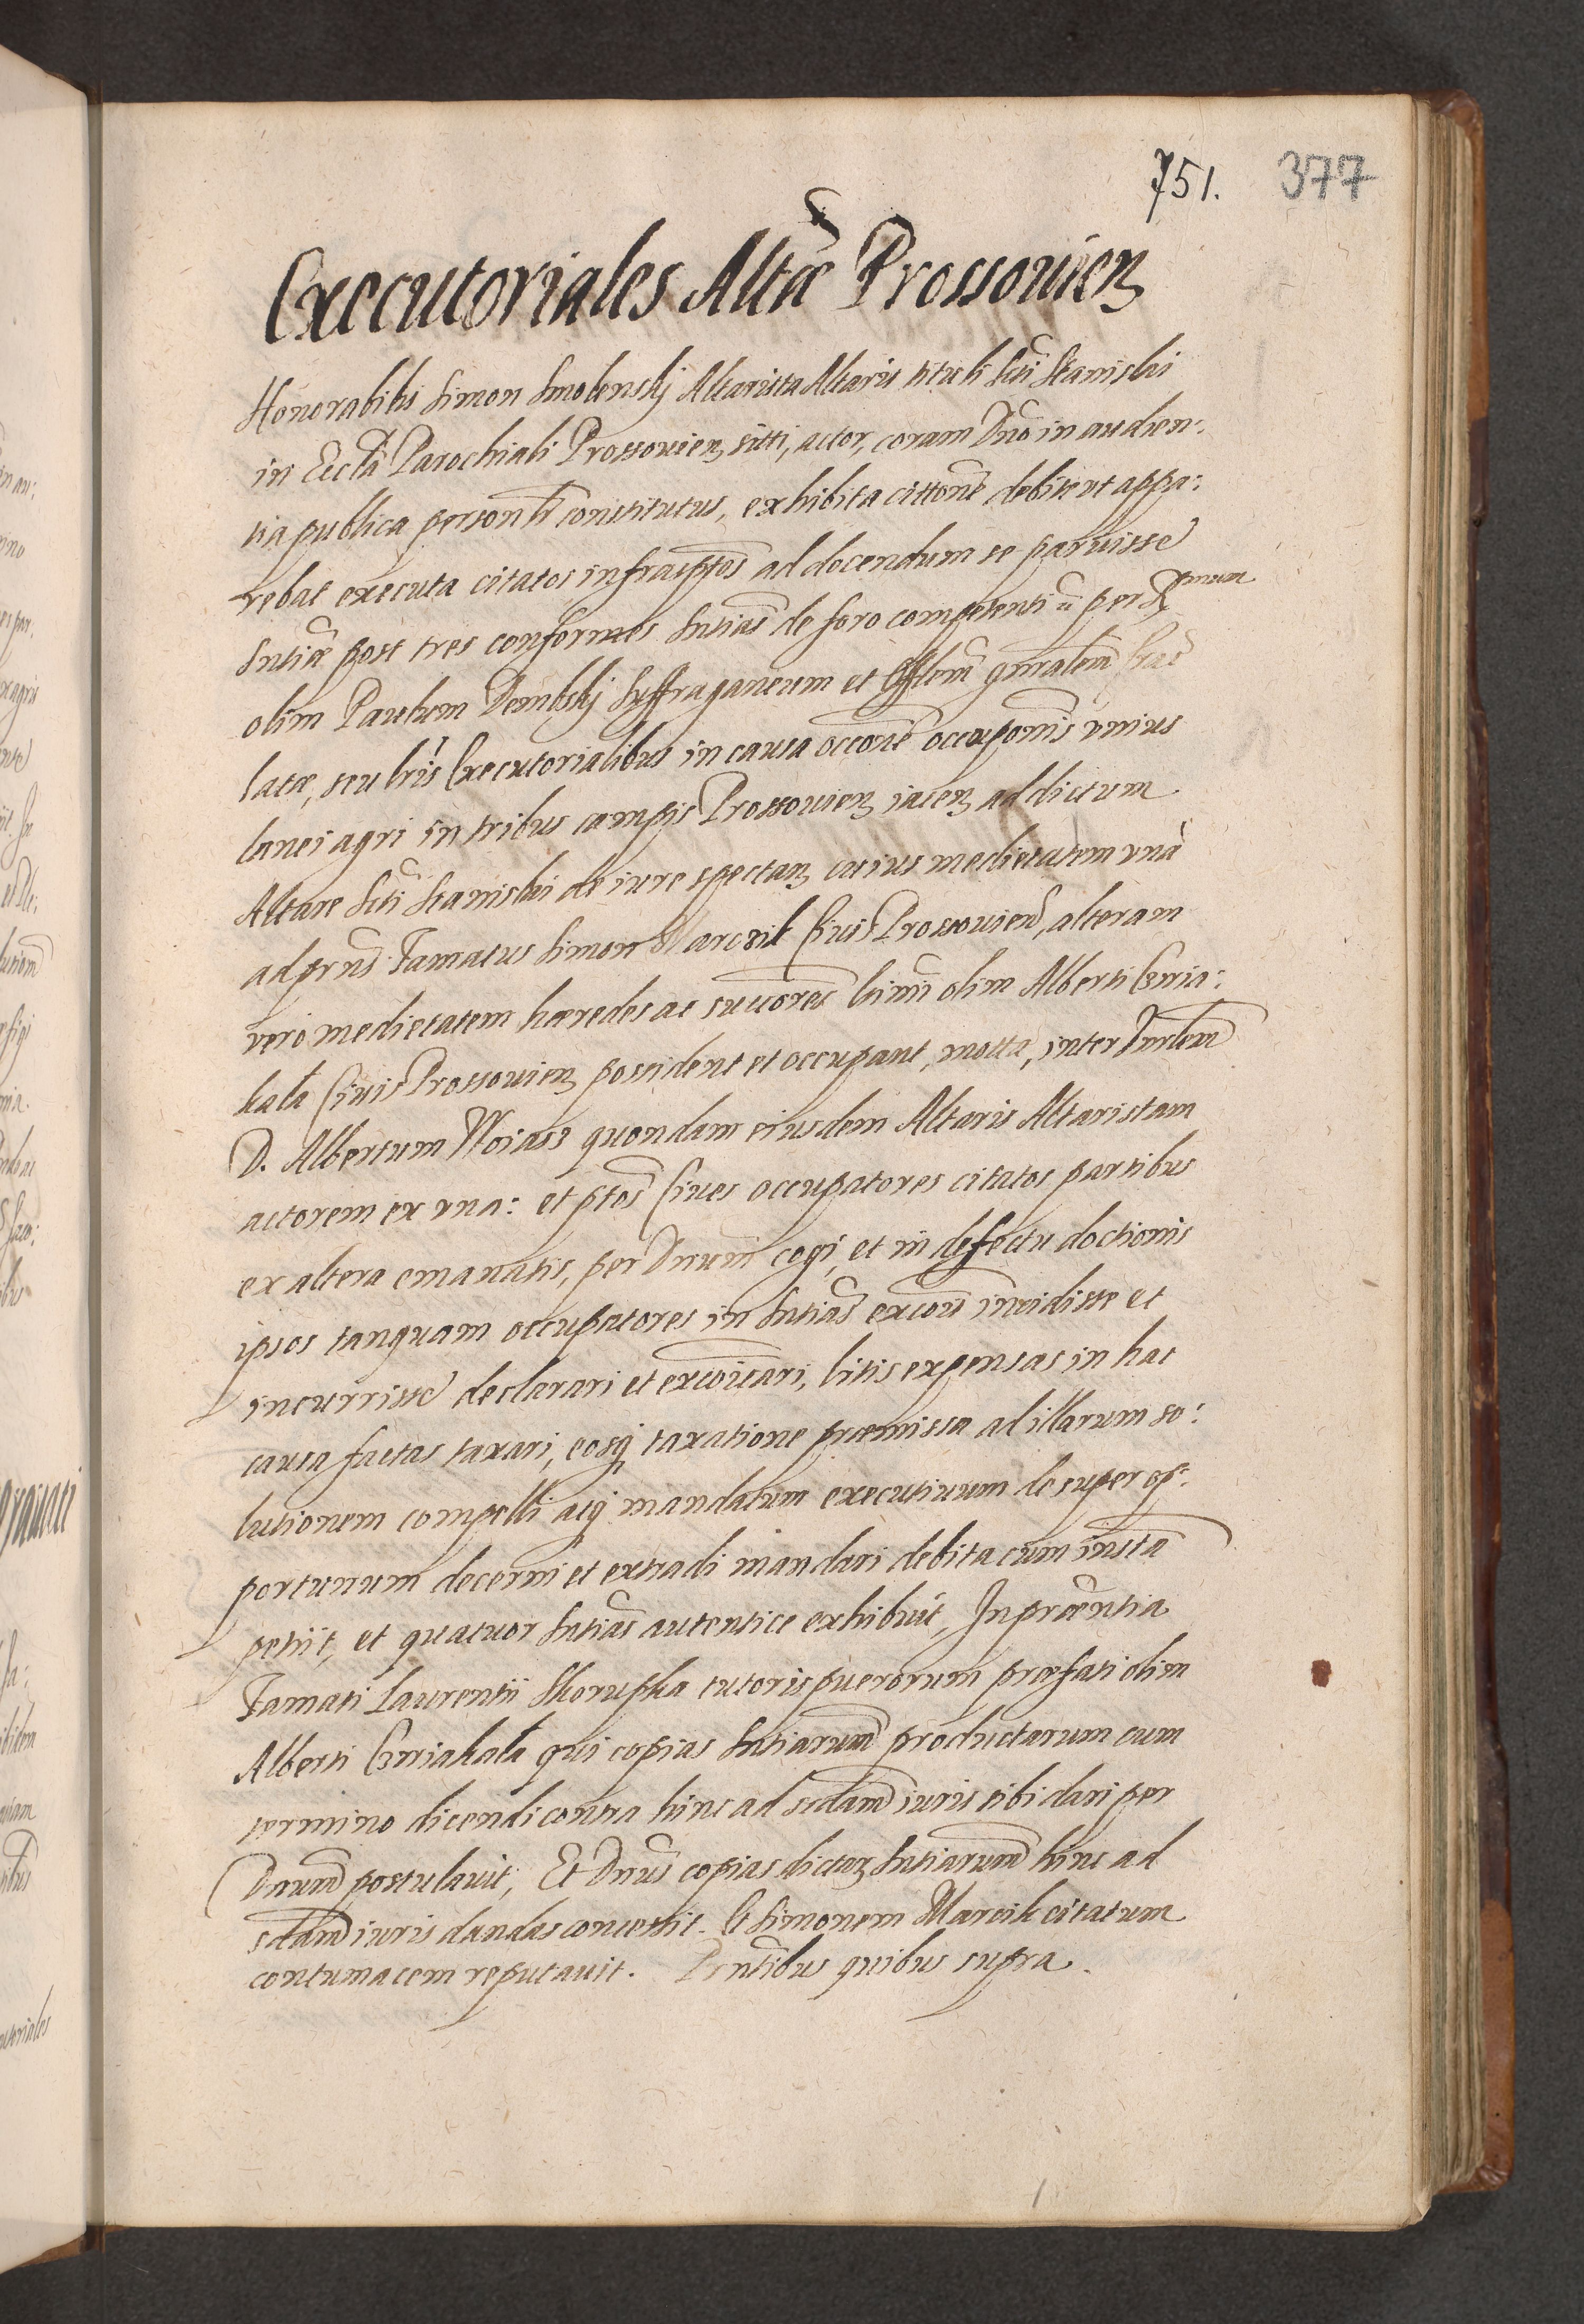 751. 377
Executoriales Altae Prossouien
Honorabilis Simon Smolenskj Altarista Altaris tituli Scti Stanislai
in Eccla Parochiali Prossouien sitti, actor, coram Dno in audien:
tia publica personlr constitutus, exhibita cittone debite ut appa:
rebat executa citatos infrascptos ad docendum se paruisse
Sntiae post tres conformes Sntias de foro competenti per
olim Paulum Dembskj Suffraganeum et Offlem gnralem Crac
latae, seu lris Executorialibus in causa occone occuponis vnius
lanei agri in tribus campis Prossouien iacen ad dictum
Altare Scti Stanislai de iure spectan cuius medietatem vna
ad prns Famatus Simon Marczik Ciuis Prossouien, alteram
vero medietatem haeredes ac succores ltimi olim Alberti Czmia:
kala Ciuis Prossouien possident et occupant, motta, inter
D. Albertum Woiass quondam eiusdem Altaris Altaristam
actorem ex vna: et ptos Ciues occupatores citatos partibus
ex altera emanatis, per Dnum cogi, et in defectu doctionis
ipsos tanquam occupatores in Sntias excois incidisse et
incurrisse declarari et excoicari, litis expensas in hac
causa factas taxari, eosq taxatione praemissa ad illarum so:
lutionem compelli atq mandatum executiuum desuper op:
portunum decerni et extradi mandari debita cum insta
petiit, et quatuor Sntias autentice exhibuit, In praesentia
Famati Laurentii Skorupka tutoris puerorum praefati olim
Alberti Czmiakala qui copias Sntiarum productarum cum
termino dicendi contra hinc ad scdam iuris sibi dari per
Dnum postulauit, Et Dnus copias dictar Sntiarum hinc ad
scdam iuris dandas concessit. Et Simonem Marcik citatum
contumacem reputauit. Prntibus quibus supra.